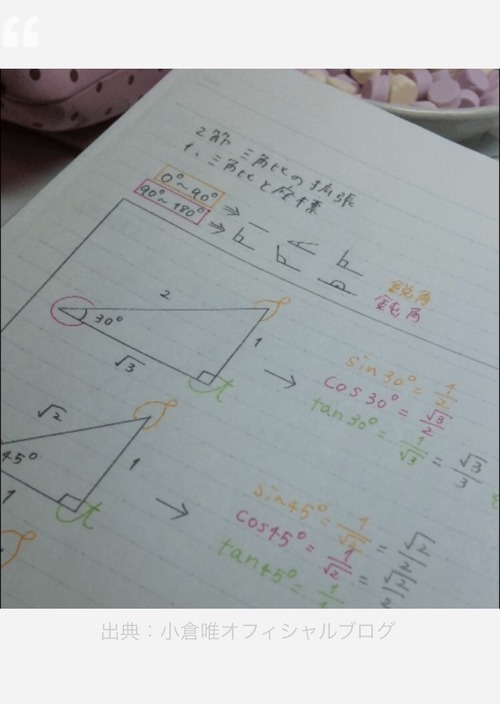 2節 三角比の拡張
1. 三角比と座標
0°~90° ⇒
90°~180° ⇒
鋭角
鈍角
2
30°
1
√3
t
→ sin30° = 1/2
cos30° = √3/2
tan30° = 1/√3 = √3/3
√2
45°
1
1
t
→ sin45° = 1/√2 = √2/2
cos45° = 1/√2 = √2/2
tan45° = 1/1
出典：小倉唯オフィシャルブログ